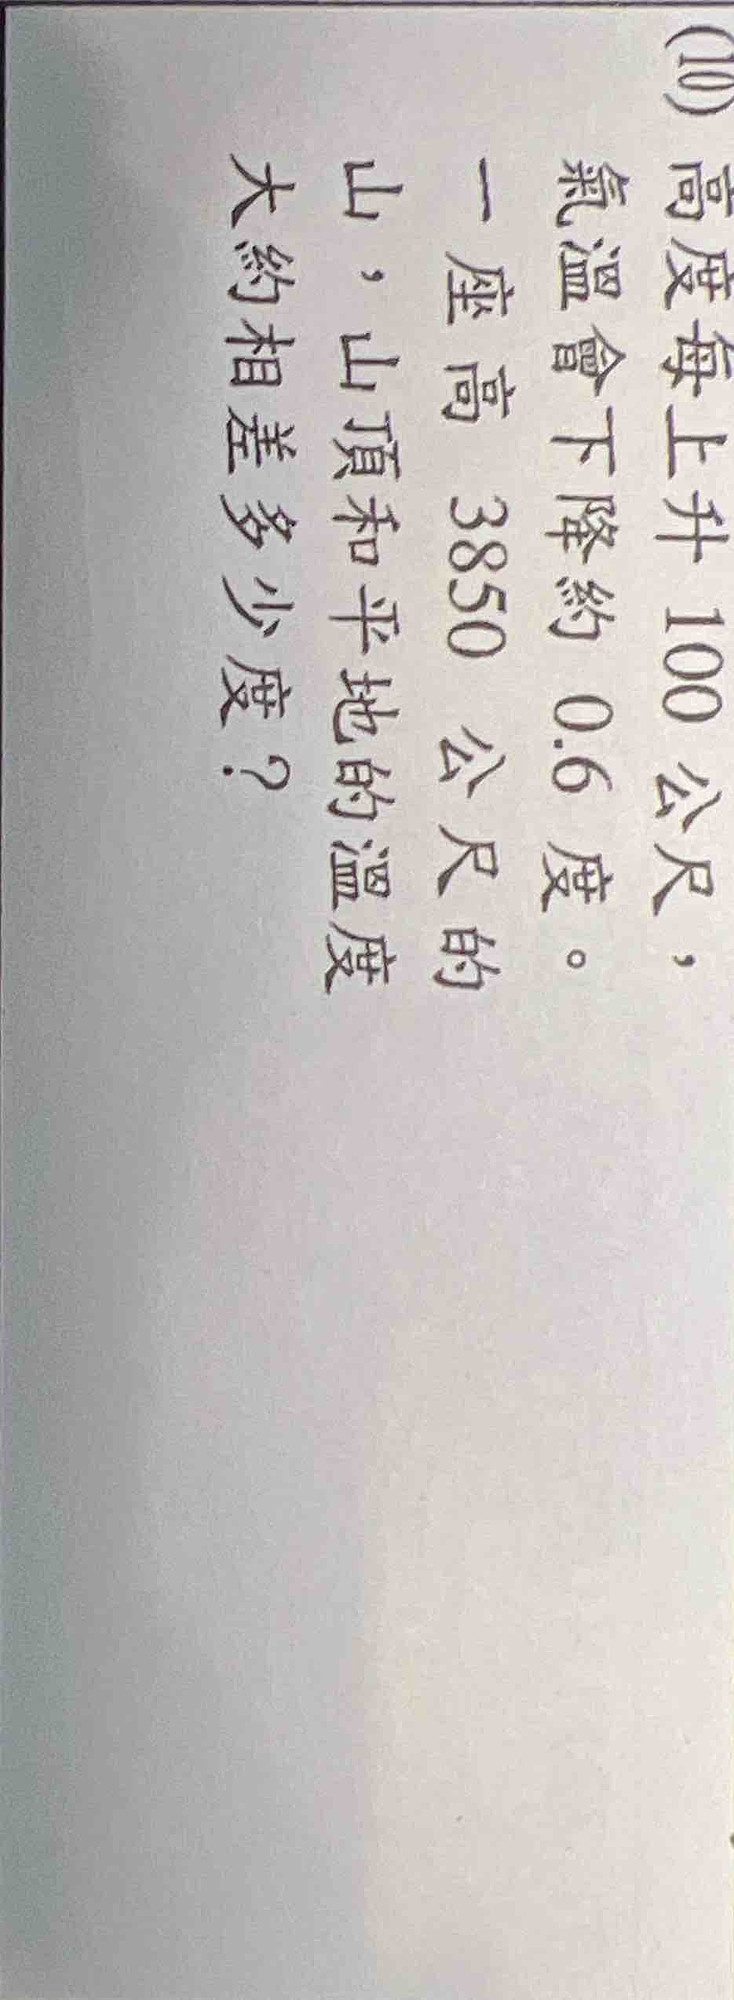 (10) 高度每上升 100 公尺，
氣溫會下降約 0.6 度。
一座高 3850 公尺的
山，山頂和平地的溫度
大約相差多少度？